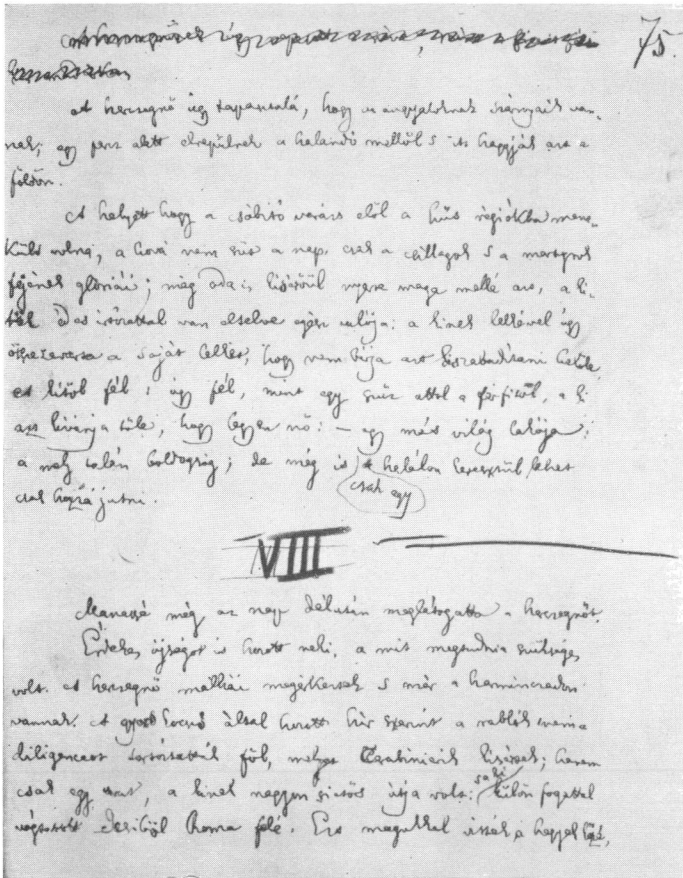 75.
A herczegnő úgy tapasztalá, hogy az angyaloknak szárnyaik van-
nak; egy percz alatt elrepülnek a halandó mellől s itt hagyják azt a
földön.
A helyett hogy a csábító varázs elől a hűs régiókba mene-
külne, a hová nem süt a nap, csak a csillagok s a martyrok
fejének glóriái; még oda is kisérőül nyere maga mellé azt, a ki-
től
a kinek lelkével úgy
össze a saját lelkét, hogy nem birja azt kiszabadítani belőle,
ez től fél; úgy fél, mint egy szűz attól a férfitől, a ki
azt kivánja tőle, hogy legyen nő: – egy más világ lakója;
a mely talán boldogság; de még is csak egy halálon keresztül lehet
csak hozzá jutni.
VIII
Manassé még az nap délután meglátogatta a herczegnőt.
Érdekes újságot is hozott neki, a mit megtudnia szükséges
volt. A herczegnő málhái megérkeztek s már a harminczadon
vannak. A kocsis által hozott hír szerint a rablók nem a
diligenceot tartóztatták föl, melyet Carabinierik kisérnek; hanem
csak egy urat, a kinek nagyon sietős útja volt: saját külön fogattal
vágtatott felé. Ezt magukkal vitték a hegyek közé,